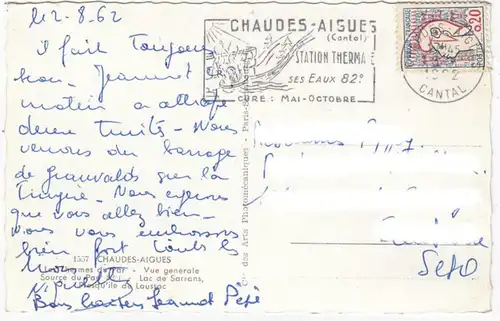 le 2-8-62
il fait toujours
bon. Jeannot
matin a attrapé
deux truites - Nous
venons du barrage
de Grandval sur la
Truyère - Nous espérons
que vous allez bien -
Nous vous embrassons
bien fort
Bons baisers Jeannot Pépé
CHAUDES-AIGUES
(Cantal)
STATION THERMALE
SES EAUX 82°
CURE: MAI-OCTOBRE
0,20
1962
CANTAL
des Arts Photomécaniques - Paris
1557 CHAUDES-AIGUES
Vue générale
Source du Par - Lac de Sarrans,
Presqu'île de Laussac